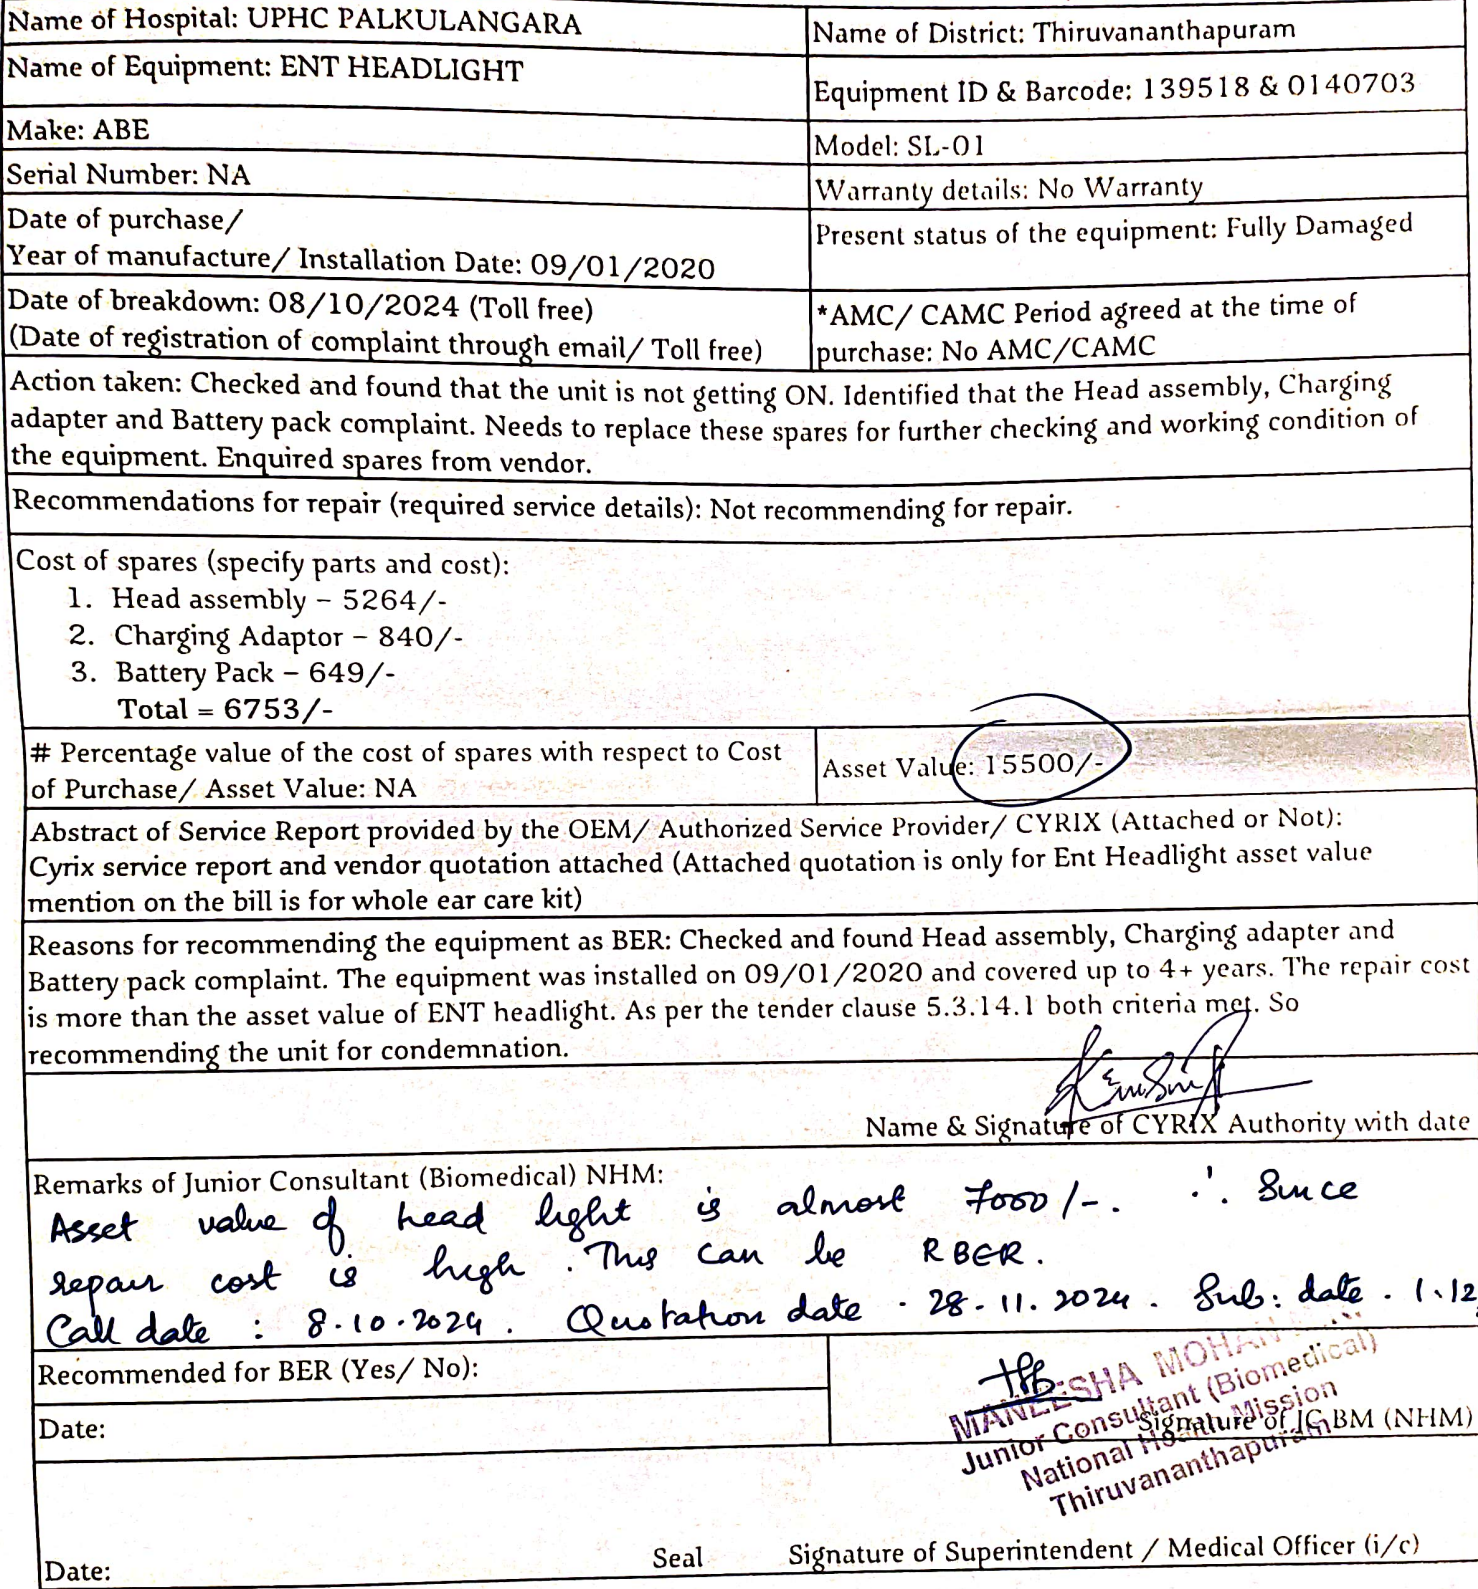 Name of Hospital: UPHC PALKULANGARA
Name of District: Thiruvananthapuram
Name of Equipment: ENT HEADLIGHT
Equipment ID & Barcode: 139518 & 0140703
Make: ABE
Model: SL-01
Serial Number: NA
Warranty details: No Warranty
Date of purchase/
Year of manufacture/ Installation Date: 09/01/2020
Present status of the equipment: Fully Damaged
Date of breakdown: 08/10/2024 (Toll free)
(Date of registration of complaint through email/ Toll free)
*AMC/ CAMC Period agreed at the time of
purchase: No AMC/CAMC
Action taken: Checked and found that the unit is not getting ON. Identified that the Head assembly, Charging
adapter and Battery pack complaint. Needs to replace these spares for further checking and working condition of
the equipment. Enquired spares from vendor.
Recommendations for repair (required service details): Not recommending for repair.
Cost of spares (specify parts and cost):
1. Head assembly – 5264/-
2. Charging Adaptor – 840/-
3. Battery Pack – 649/-
Total = 6753/-
# Percentage value of the cost of spares with respect to Cost
of Purchase/ Asset Value: NA
Asset Value: 15500/-
Abstract of Service Report provided by the OEM/ Authorized Service Provider/ CYRIX (Attached or Not):
Cyrix service report and vendor quotation attached (Attached quotation is only for Ent Headlight asset value
mention on the bill is for whole ear care kit)
Reasons for recommending the equipment as BER: Checked and found Head assembly, Charging adapter and
Battery pack complaint. The equipment was installed on 09/01/2020 and covered up to 4+ years. The repair cost
is more than the asset value of ENT headlight. As per the tender clause 5.3.14.1 both criteria met. So
recommending the unit for condemnation.
Name & Signature of CYRIX Authority with date
Remarks of Junior Consultant (Biomedical) NHM:
Asset value of head light is almost 7000/-. ∴ Since
repair cost is high. This can be RBER.
Call date : 8.10.2024. Quotation date . 28.11.2024. Sub: date . 1.12
Recommended for BER (Yes/ No):
Date:
MANEESHA
Junior Consultant (Biomedical)
National Health Mission
Thiruvananthapuram
Signature of JC BM (NHM)
Date:
Seal
Signature of Superintendent / Medical Officer (i/c)